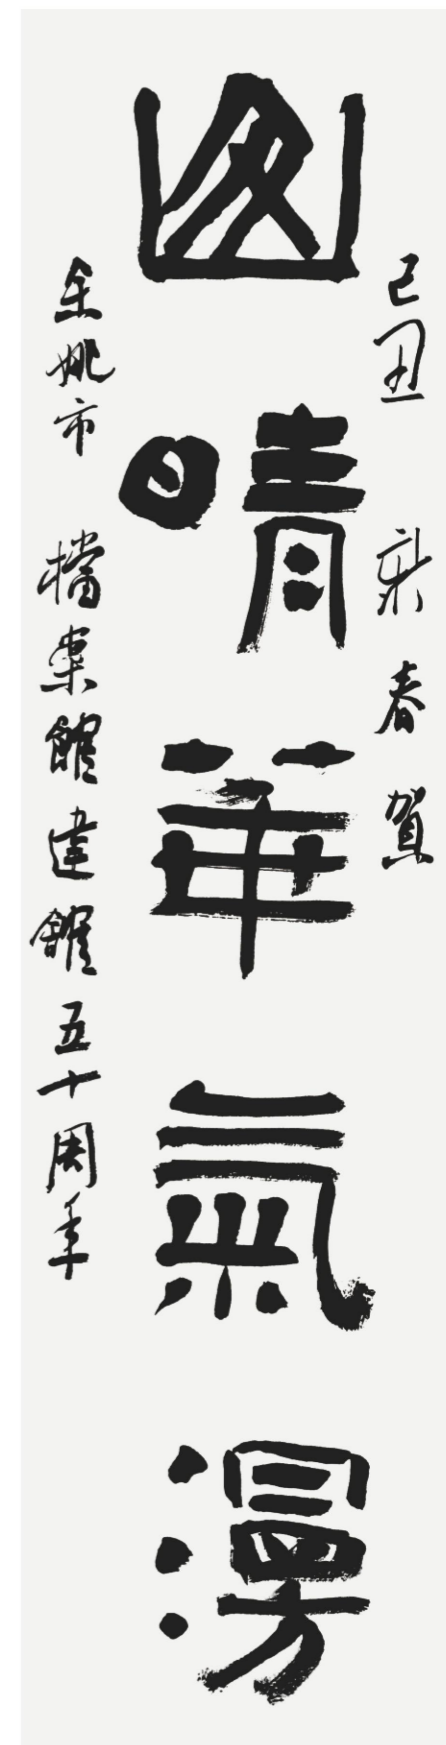 己丑 新春賀
山晴華氣漫
余姚市 檔案館建館五十周年